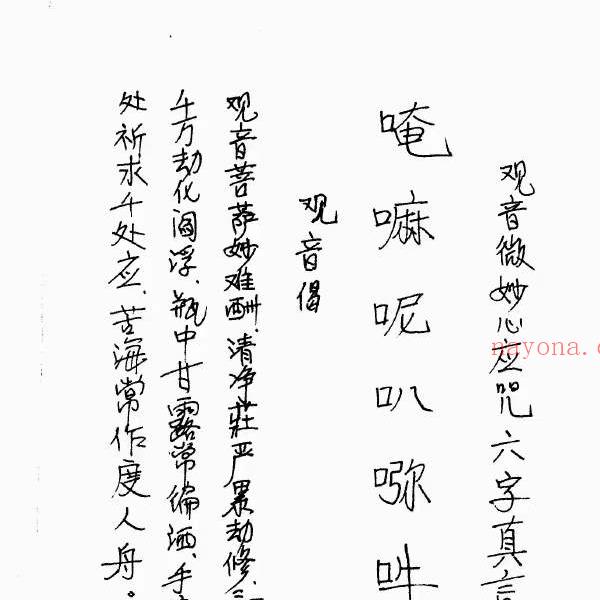 观音微妙心应咒六字真言
唵嘛呢叭𠺗吽
观音偈
观音菩萨妙难酬、清净莊严累劫修、三
千万劫化阎浮、瓶中甘露常编洒、手
处祈求千处应、苦海常作度人舟。
nayona.c